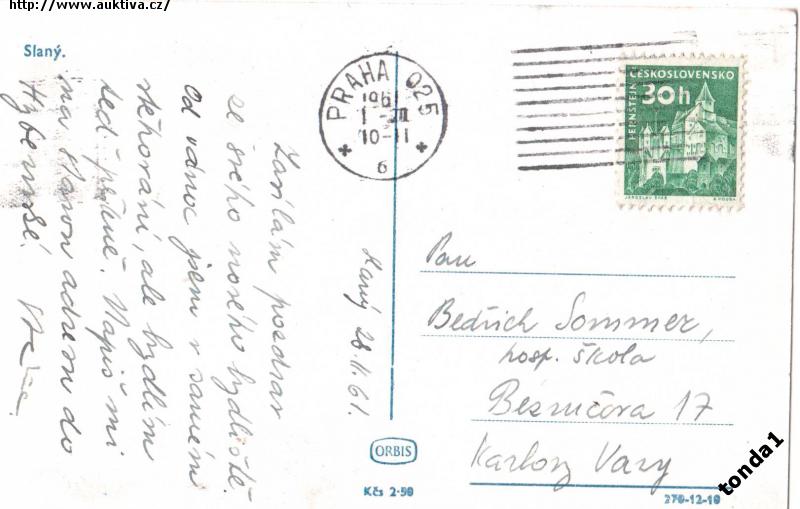 http://www.auktiva.cz/
Slaný.
PRAHA 025
1961
10-11
6
ČESKOSLOVENSKO
30h
PERNŠTEJN
JAROSLAV ŠVÁB
Slaný 28.II.61.
Zasílám pozdrav
ze svého nového bydliště.
Od vánoc jsem v samém
stěhování, ale bydlím
teď pěkně. Napiš mi
na adresu do
Pan
Bedřich Sommer,
hosp. škola
Bezručova 17
Karlovy Vary
ORBIS
Kčs 2·90
270-12-10
tonda1